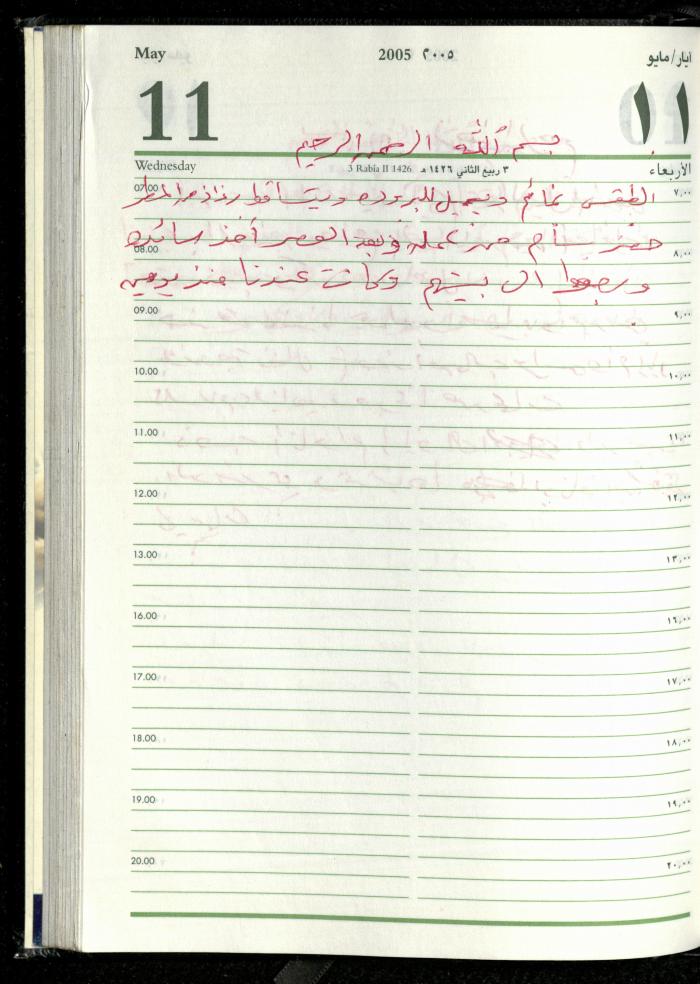 May 2005 ٢٠٠٥ ايار/مايو
11 ١١
بسم الله الرحمن الرحيم
Wednesday 3 Rabia II 1426 ٣ ربيع الثاني ١٤٢٦ هـ الأربعاء
الطقس غائم ويميل للبروده ويتساقط رذاذ المطر
07.00 ٧,٠٠
حضر بسام من عمله وبعد العصر أخذ سائده
08.00 ٨,٠٠
ورجعوا الى بيتهم وكانت عندنا منذ يومين
09.00 ٩,٠٠
10.00 ١٠,٠٠
11.00 ١١,٠٠
12.00 ١٢,٠٠
13.00 ١٣,٠٠
16.00 ١٦,٠٠
17.00 ١٧,٠٠
18.00 ١٨,٠٠
19.00 ١٩,٠٠
20.00 ٢٠,٠٠